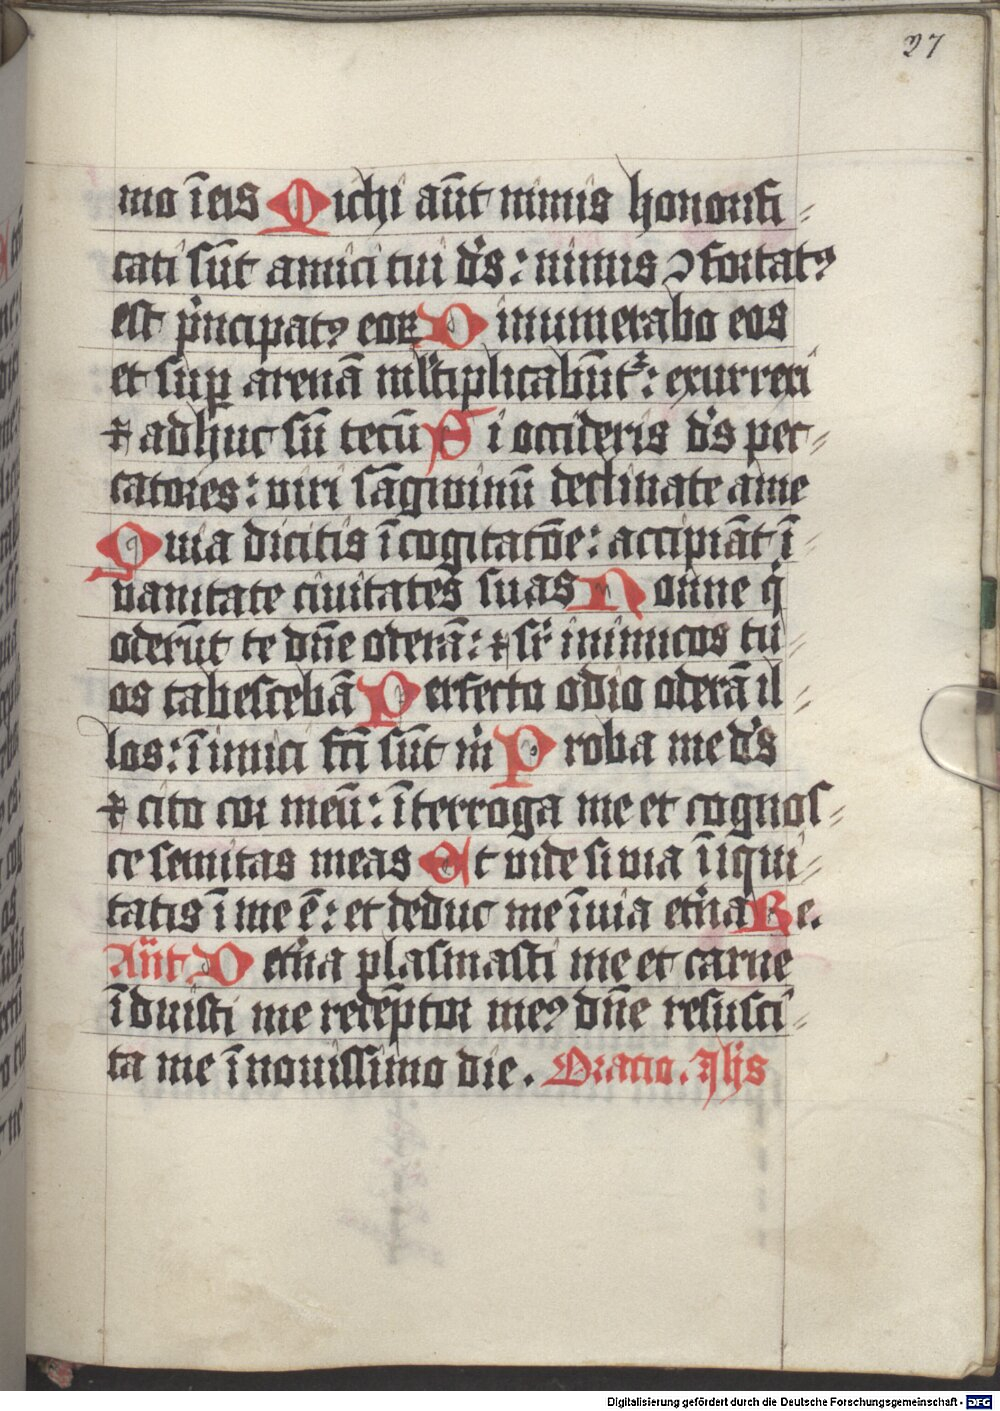 27
mo ī eis Michi aūt nimis honorifi-
cati sūt amici tui d's: nimis ꝯfortatꝰ
est p'ncipatꝰ eoꝝ Dinumerabo eos
et suꝑ arenā ml'tiplicabūt': exurrexi
⁊ adhuc sū tecū Si occideris d's pec-
catores: viri sāgwinū declinate a me
Quia dicitis ī cogitatōe: accipiāt ī
vanitate ciuitates suas Nonne q'
oderūt te dn̄e oderā: ⁊ sr' inimicos tu-
os tabescebā Perfecto odio oderā il-
los: īimici fc̄i sūt m' Proba me d's
⁊ cito cor meū: īterroga me et cognos-
ce semitas meas Et vide si via īiqui-
tatis ī me ē: et deduc me ī via et'na Re.
An̄t De et'na plasmasti me et carne
īduisti me redēptor meꝰ dn̄e resusci-
ta me ī nouissimo die. Oratio. Alis
Digitalisierung gefördert durch die Deutsche Forschungsgemeinschaft - DFG